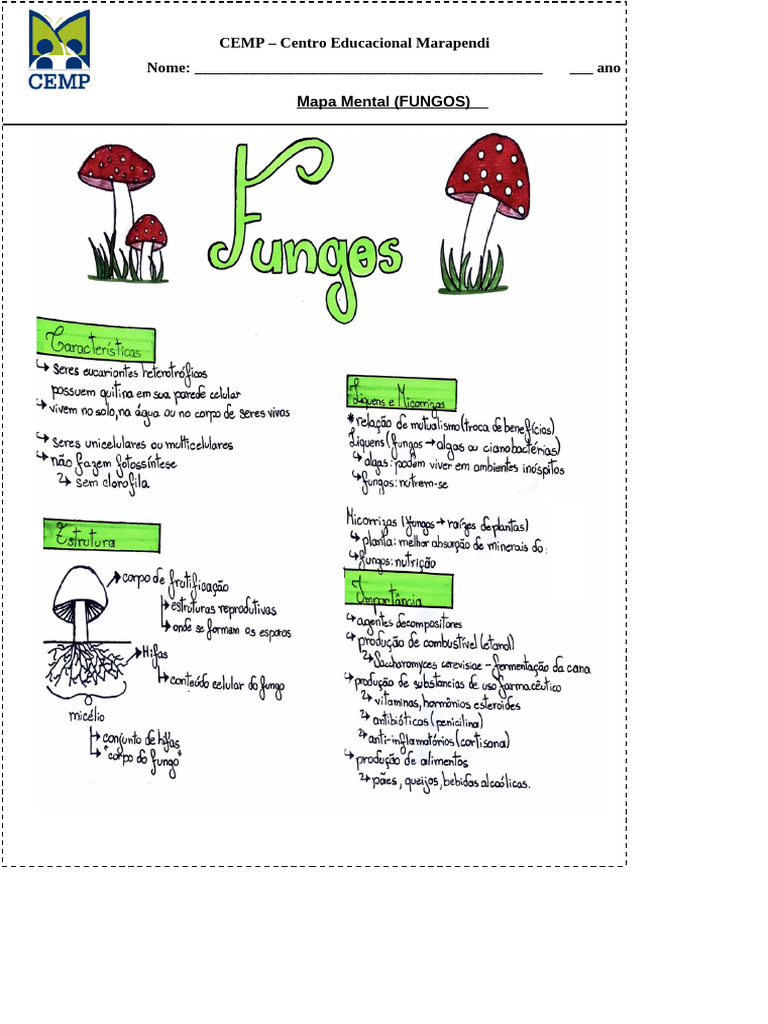 CEMP
CEMP – Centro Educacional Marapendi
Nome: ___________________________________________ ___ ano
Mapa Mental (FUNGOS)
Fungos
Características
seres eucariontes heterotróficos
possuem quitina em sua parede celular
vivem no solo, na água ou no corpo de seres vivos
seres unicelulares ou multicelulares
não fazem fotossíntese
sem clorofila
Estrutura
corpo de frutificação
estruturas reprodutivas
onde se formam os esporos
Hifas
conteúdo celular do fungo
micélio
conjunto de hifas
"corpo do fungo"
Líquens e Micorrizas
*relação de mutualismo (troca de benefícios)
Líquens (fungos → algas ou cianobactérias)
algas: podem viver em ambientes inóspitos
fungos: nutrem-se
Micorrizas (fungos → raízes de plantas)
planta: melhor absorção de minerais do:
fungos: nutrição
Importância
agentes decompositores
produção de combustível (etanol)
Saccharomyces cerevisiae - fermentação da cana
produção de substancias de uso farmacêutico
vitaminas, hormônios esteroides
antibióticos (penicilina)
anti-inflamatórios (cortisona)
produção de alimentos
pães, queijos, bebidas alcoólicas.